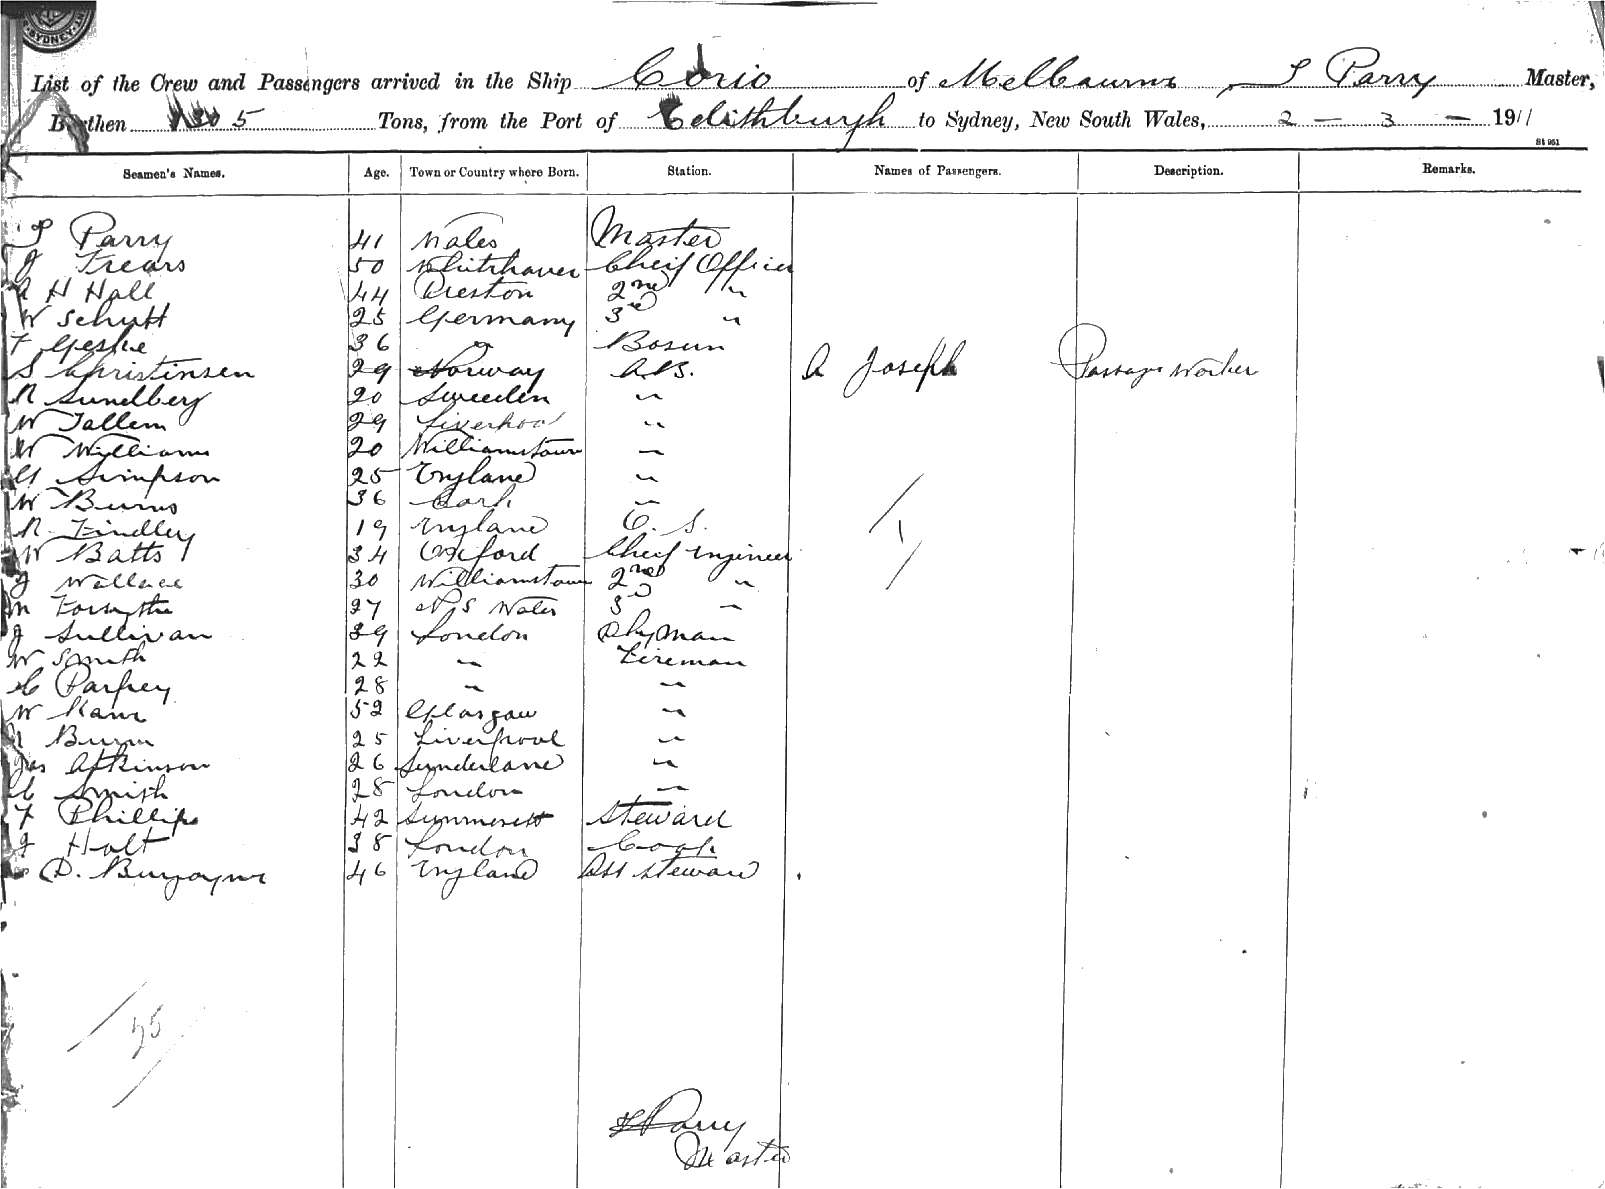 SYDNEY
List of the Crew and Passengers arrived in the Ship Corio of Melbourne, T Parry Master,
Burthen 5 Tons, from the Port of Edithburgh to Sydney, New South Wales, 2 - 3 - 1911
St 951
Seamen's Names. Age. Town or Country where Born. Station. Names of Passengers. Description. Remarks.
T Parry 41 Wales Master
J Frears 50 Whitehaven Cheif Officer
A H Hall 44 Preston 2nd "
W Schutt 25 Germany 3rd "
F Geske 36 " Bosun
S Christinsen 29 Norway A.B. A Joseph Passage Worker
R Sundberg 20 Sweeden "
W Tallem 29 Liverpool "
W Williams 20 Williamstown "
G Simpson 25 England "
W Burns 36 Cork "
R Findley 19 England O. S.
W Batts 34 Oxford Cheif Engineer
J Wallace 30 Williamstown 2nd "
M Forsythe 27 N S Wales 3rd "
J Sullivan 39 London Dkyman
W Smith 22 " Fireman
C Parfrey 28 " "
W Kane 52 Glasgow "
Burn 25 Liverpool "
Jas Atkinson 26 Sunderland "
C Smith 28 London "
F Phillips 42 Summersett Steward
J Holt 38 London Cook
D. Burgoyne 46 England Ass Steward
25
T Parry
Master